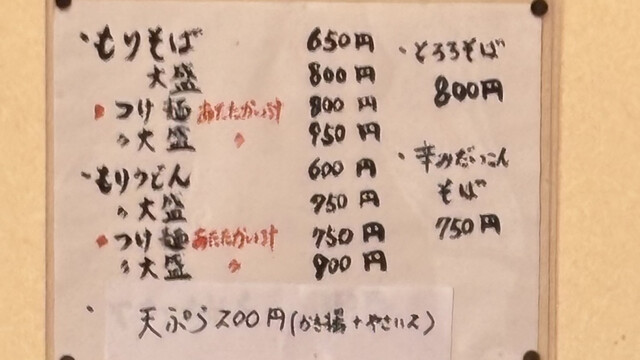 ・もりそば 650円
大盛 800円
・つけ麺 あたたかい汁 800円
〃大盛 〃 950円
・もりうどん 600円
〃大盛 750円
・つけ麺 あたたかい汁 750円
〃大盛 〃 900円
・とろろそば
800円
・辛みだいこん
そば
750円
・天ぷら200円(かき揚+やさい2)